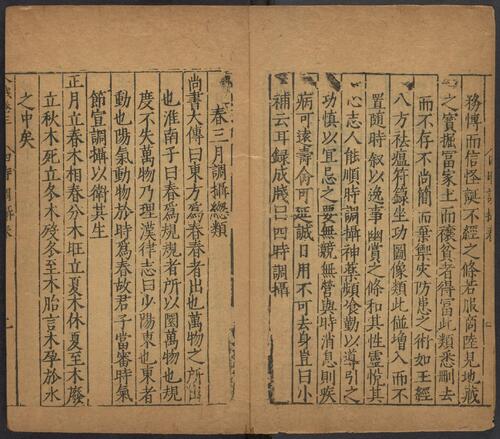 務博而信怪誕不經之條若服商陸見地藏
之寶掘富家土而禳貧者得冨此類悉刪去
而不存不尚簡而棄禦灾防患之術如玉經
八方祛瘟符籙坐功圖像類此倂增入而不
置隨時敘以逸事幽賞之條和其性靈悅其
心志人能順時調攝神藥食勤以導引之
功慎以宜忌之要無競無營與時消息則疾
病可遠壽命可延誠日用不可去身豈曰小
補云耳錄成牋曰四時調攝
春三月調攝總類
尚書大傳曰東方為春春者出也萬物之所出
也淮南子曰春為規規者所以圜萬物也規
度不失萬物乃理漢律志曰少陽東也東者
動也陽氣動物於時為春故君子當審時氣
節宣調攝以衛其生
正月立春木相春分木旺立夏木休夏至木廢
立秋木死立冬木歿冬至木胎言木孕於水
之中矣